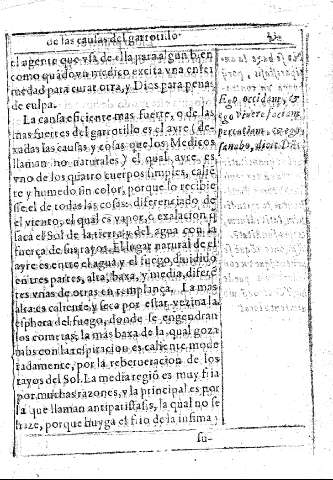 de las causas del garrotillo.
el agente que vsa de ella para algun bien
como quãdo vn medico excita vna enfer
medad para curar otra, y Dios para penas
de culpa.
La causa eficiente mas fuerte, o de las
mas fuertes del garrotillo es el ayre (de-
xadas las causas y cosas que los Medicos
llaman no naturales) el qual ayre es
vno de los quatro cuerpos simples, caliē
te y humedo sin color, porque lo recibie
sse el de todas las cosas: diferenciado de
el viento, el qual es vapor, o exalacion q̃
saca el Sol de la tierra y del agua con la
fuerça de sus rayos. El lugar natural de el
ayre es entre el agua y el fuego, diuidido
en tres partes, alta, baxa, y media, diferē
tes vnas de otras en templança. La mas
alta es caliente y seca por estar vezina la
esphera del fuego, donde se engendran
los cometas; la mas baxa de la qual goza
mos con la respiracion es caliente mode
radamente, por la reberueracion de los
rayos del Sol. La media regiõ es muy fria
por muchas razones, y la principal es por
la que llaman antiparistasis, la qual no se
haze, porque huyga el frio de la infima y
su-
Ego occidam, &
ego viuere faciam
percutiam, & ego
sanabo, dicit Dñs